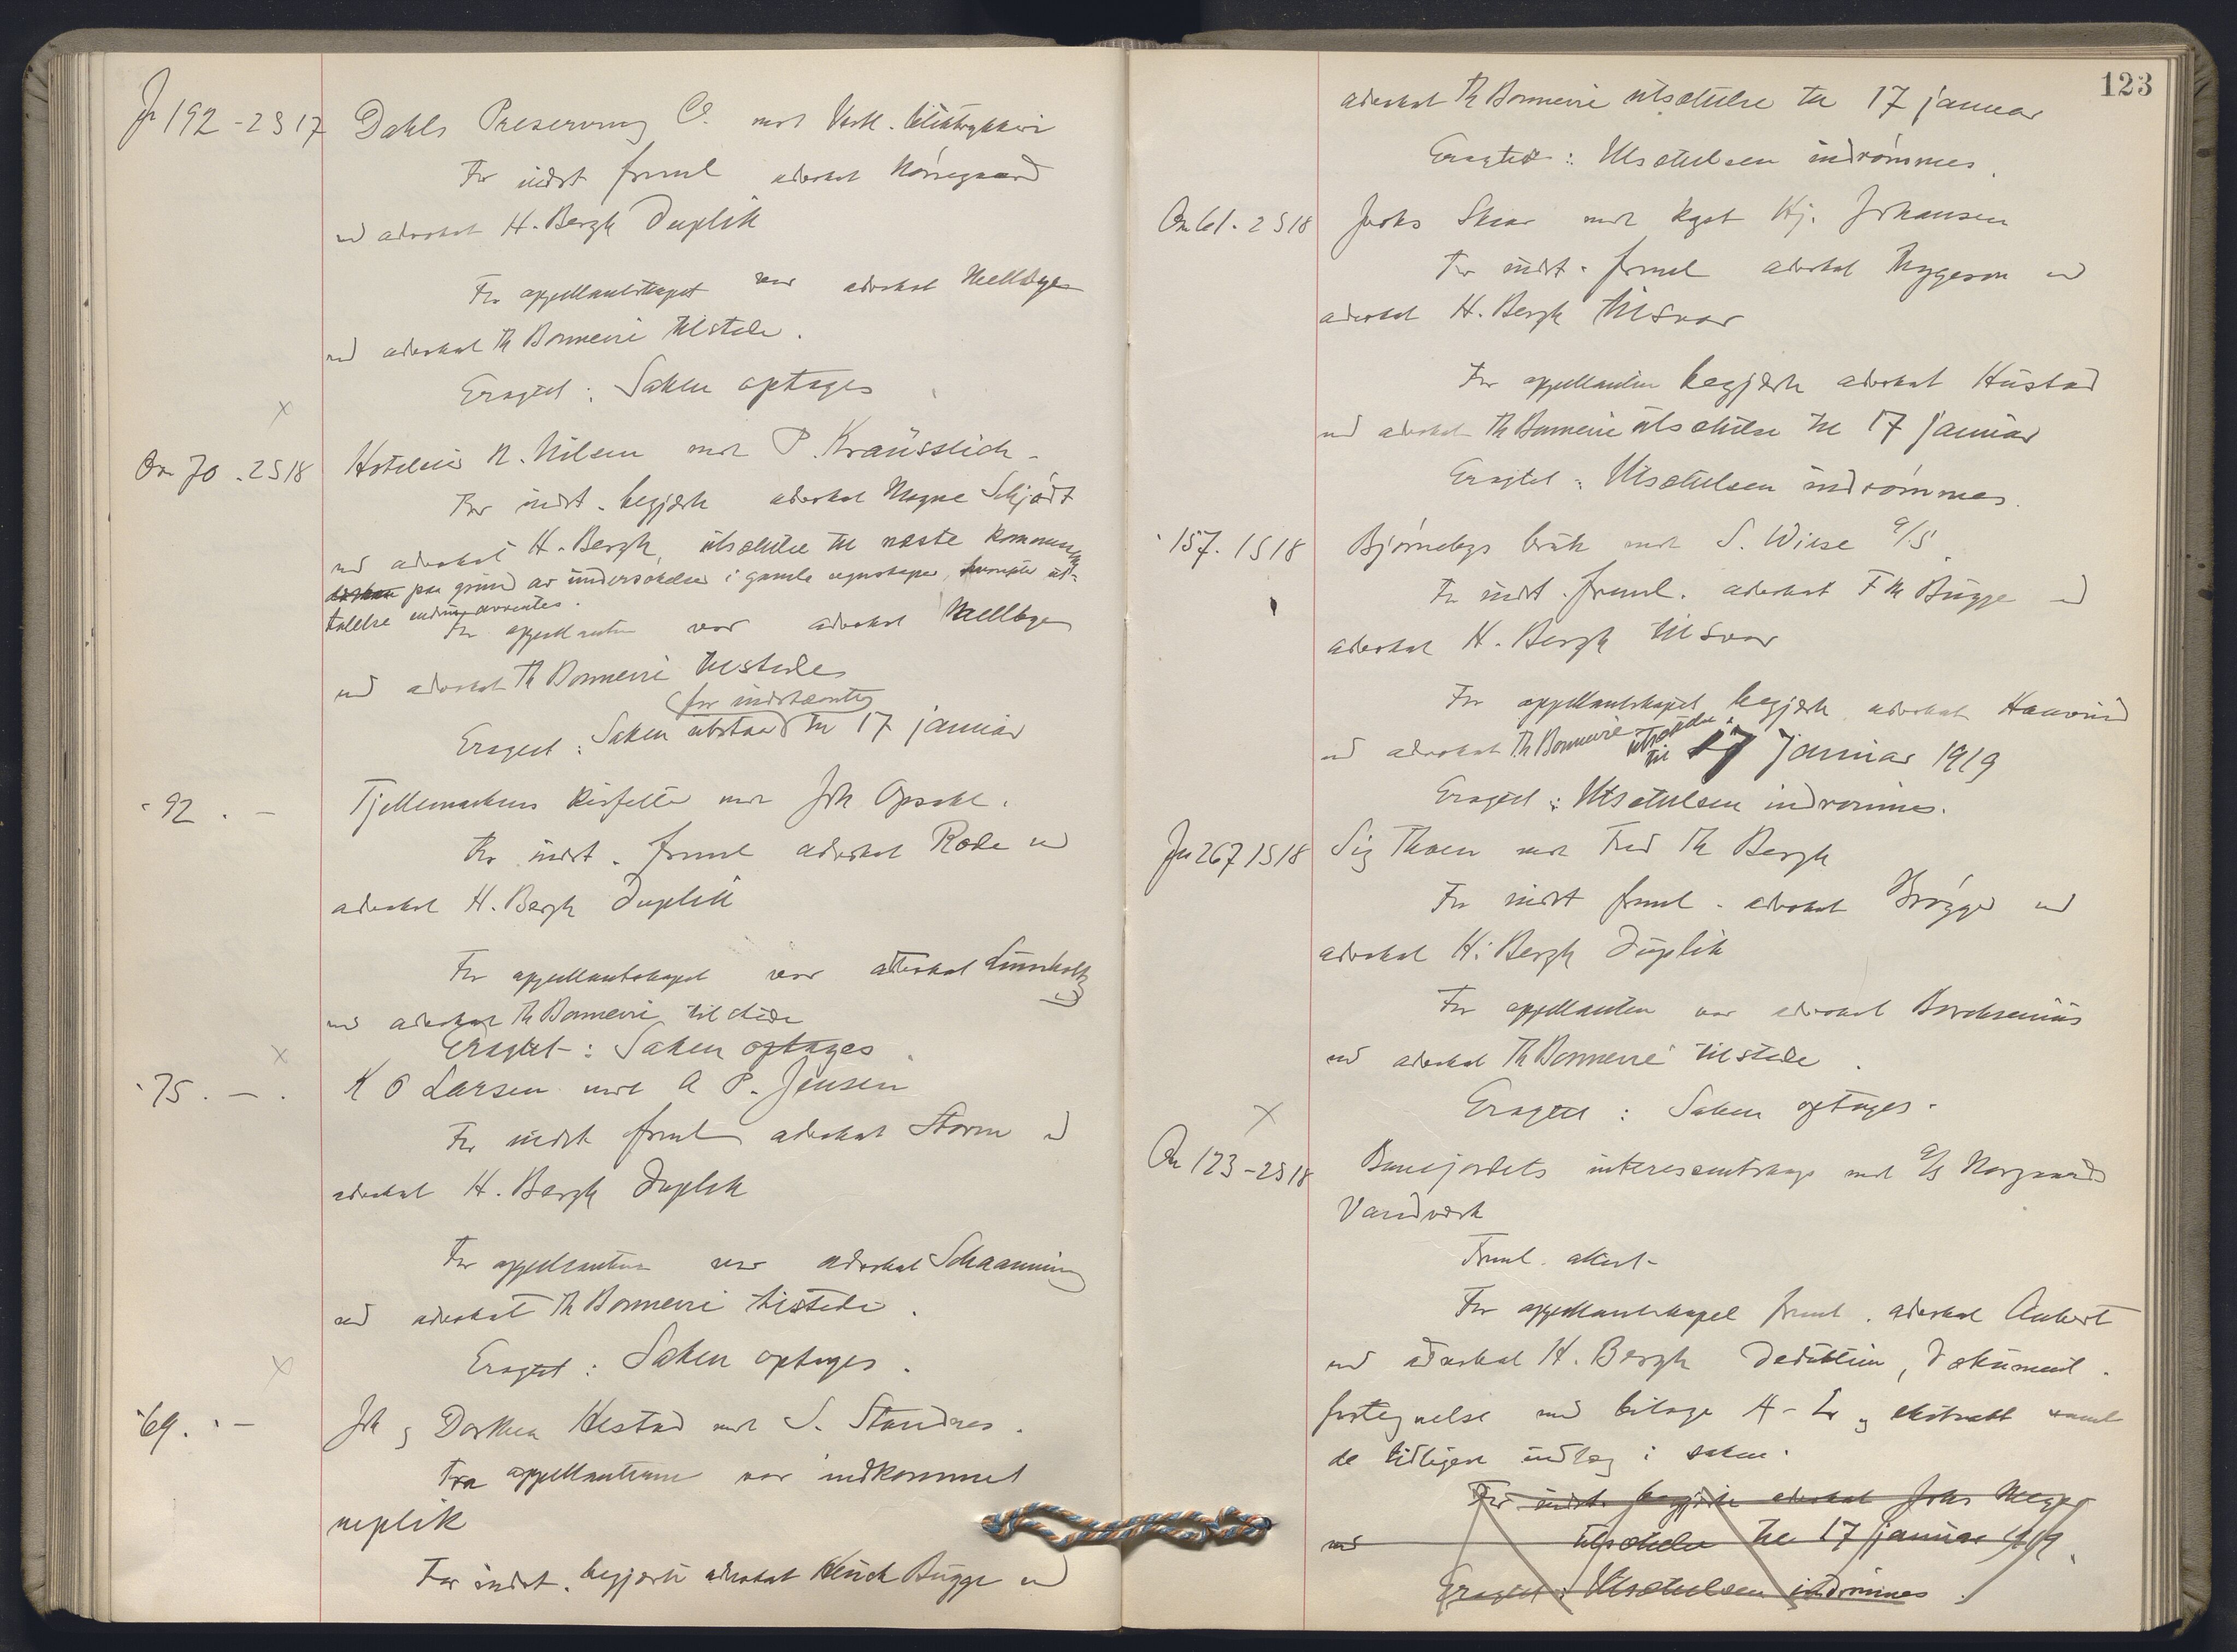 Jr 192-2S17 Dahls Preserving Co. mot Vestl. bliktrykkeri
For indst freml advokat Nørregaard
ved advokat H. Bergh Duplik
For appellantskapet var advokat Mellbye
ved advokat Th Bonnevie tilstede.
Eragtet: Saken optages
x
On 70.2S18 Hoteleier N. Nilsen mot P. Kräusslich.
For indst. begjærte advokat Magne Schjødt
ved advokat H. Bergh, utsættelse til næste
paa grund av undersøkelser i gamle regnskaper, ut-
talelse endnu avventes.
For appellanten var advokat Mellbye
ved advokat Th Bonnevie tilstede
for indstævnte
Eragtet: Saken utstaar til 17 januar
" 92. - Fjellemarkens mot Joh Opsahl.
For indst. freml advokat Rode ved
advokat H. Bergh Duplik
For appellantskapet var advokat Lunnholtz
ved advokat Th Bonnevie tilstede
Eragtet: Saken optages
x
" 75. - . K O Larsen mot A P. Jensen
For indst freml advokat Storm ved
advokat H. Bergh Duplik
For appellanten var advokat Schaanning
ved advokat Th Bonnevie tilstede.
Eragtet: Saken optages.
x
" 69. " - Joh og Dorthea Hestad mot S. Standnes.
Fra appellantene var indkommet
replik
For indst. begjærte advokat Henrik Bugge ved
123
advokat Th Bonnevie utsættelse til 17 januar
Eragtet: Utsættelsen indrømmes.
On 61. 2S18 Johs Skar mot kgst Kj. Johansen
For indst. freml advokat Trygeson ved
advokat H. Bergh tilsvar
For appellanten begjærte advokat Hustad
ved advokat Th Bonnevie utsættelse til 17 januar
Eragtet: Utsættelsen indrømmes.
" 157. 1S18 Bjørnebys bruk mot S. Wiese A/S.
For indst. freml. advokat F M Bugge ved
advokat H. Bergh tilsvar
For appellantskapet begjærte advokat Haavind
ved advokat Th Bonnevie utsættelse til 17 januar 1919
Eragtet: Utsættelsen indrømmes.
Jn 267 1S18 Sig Thoen mot Fred Th Bergh
For indst freml. advokat Brøgger ved
advokat H. Bergh Duplik
For appellanten var advokat Borchsenius
ved advokat Th Bonnevie tilstede.
Eragtet: Saken optages.
x
On 123-2S18 Bunejordets interessentskap mot A/S Norgaards
Vandverk
Freml. attest-
For appellantskapet freml. advokat Aubert
ved advokat H. Bergh Deduktion, Dokument.
fortegnelse med bilage A-L og ekstrakt samt
de tidligere indlæg i saken.
For indst. begjærte advokat Johs Meyer
ved utsættelse til 17 januar 1919.
Eragtet: Utsættelsen indrømmes.